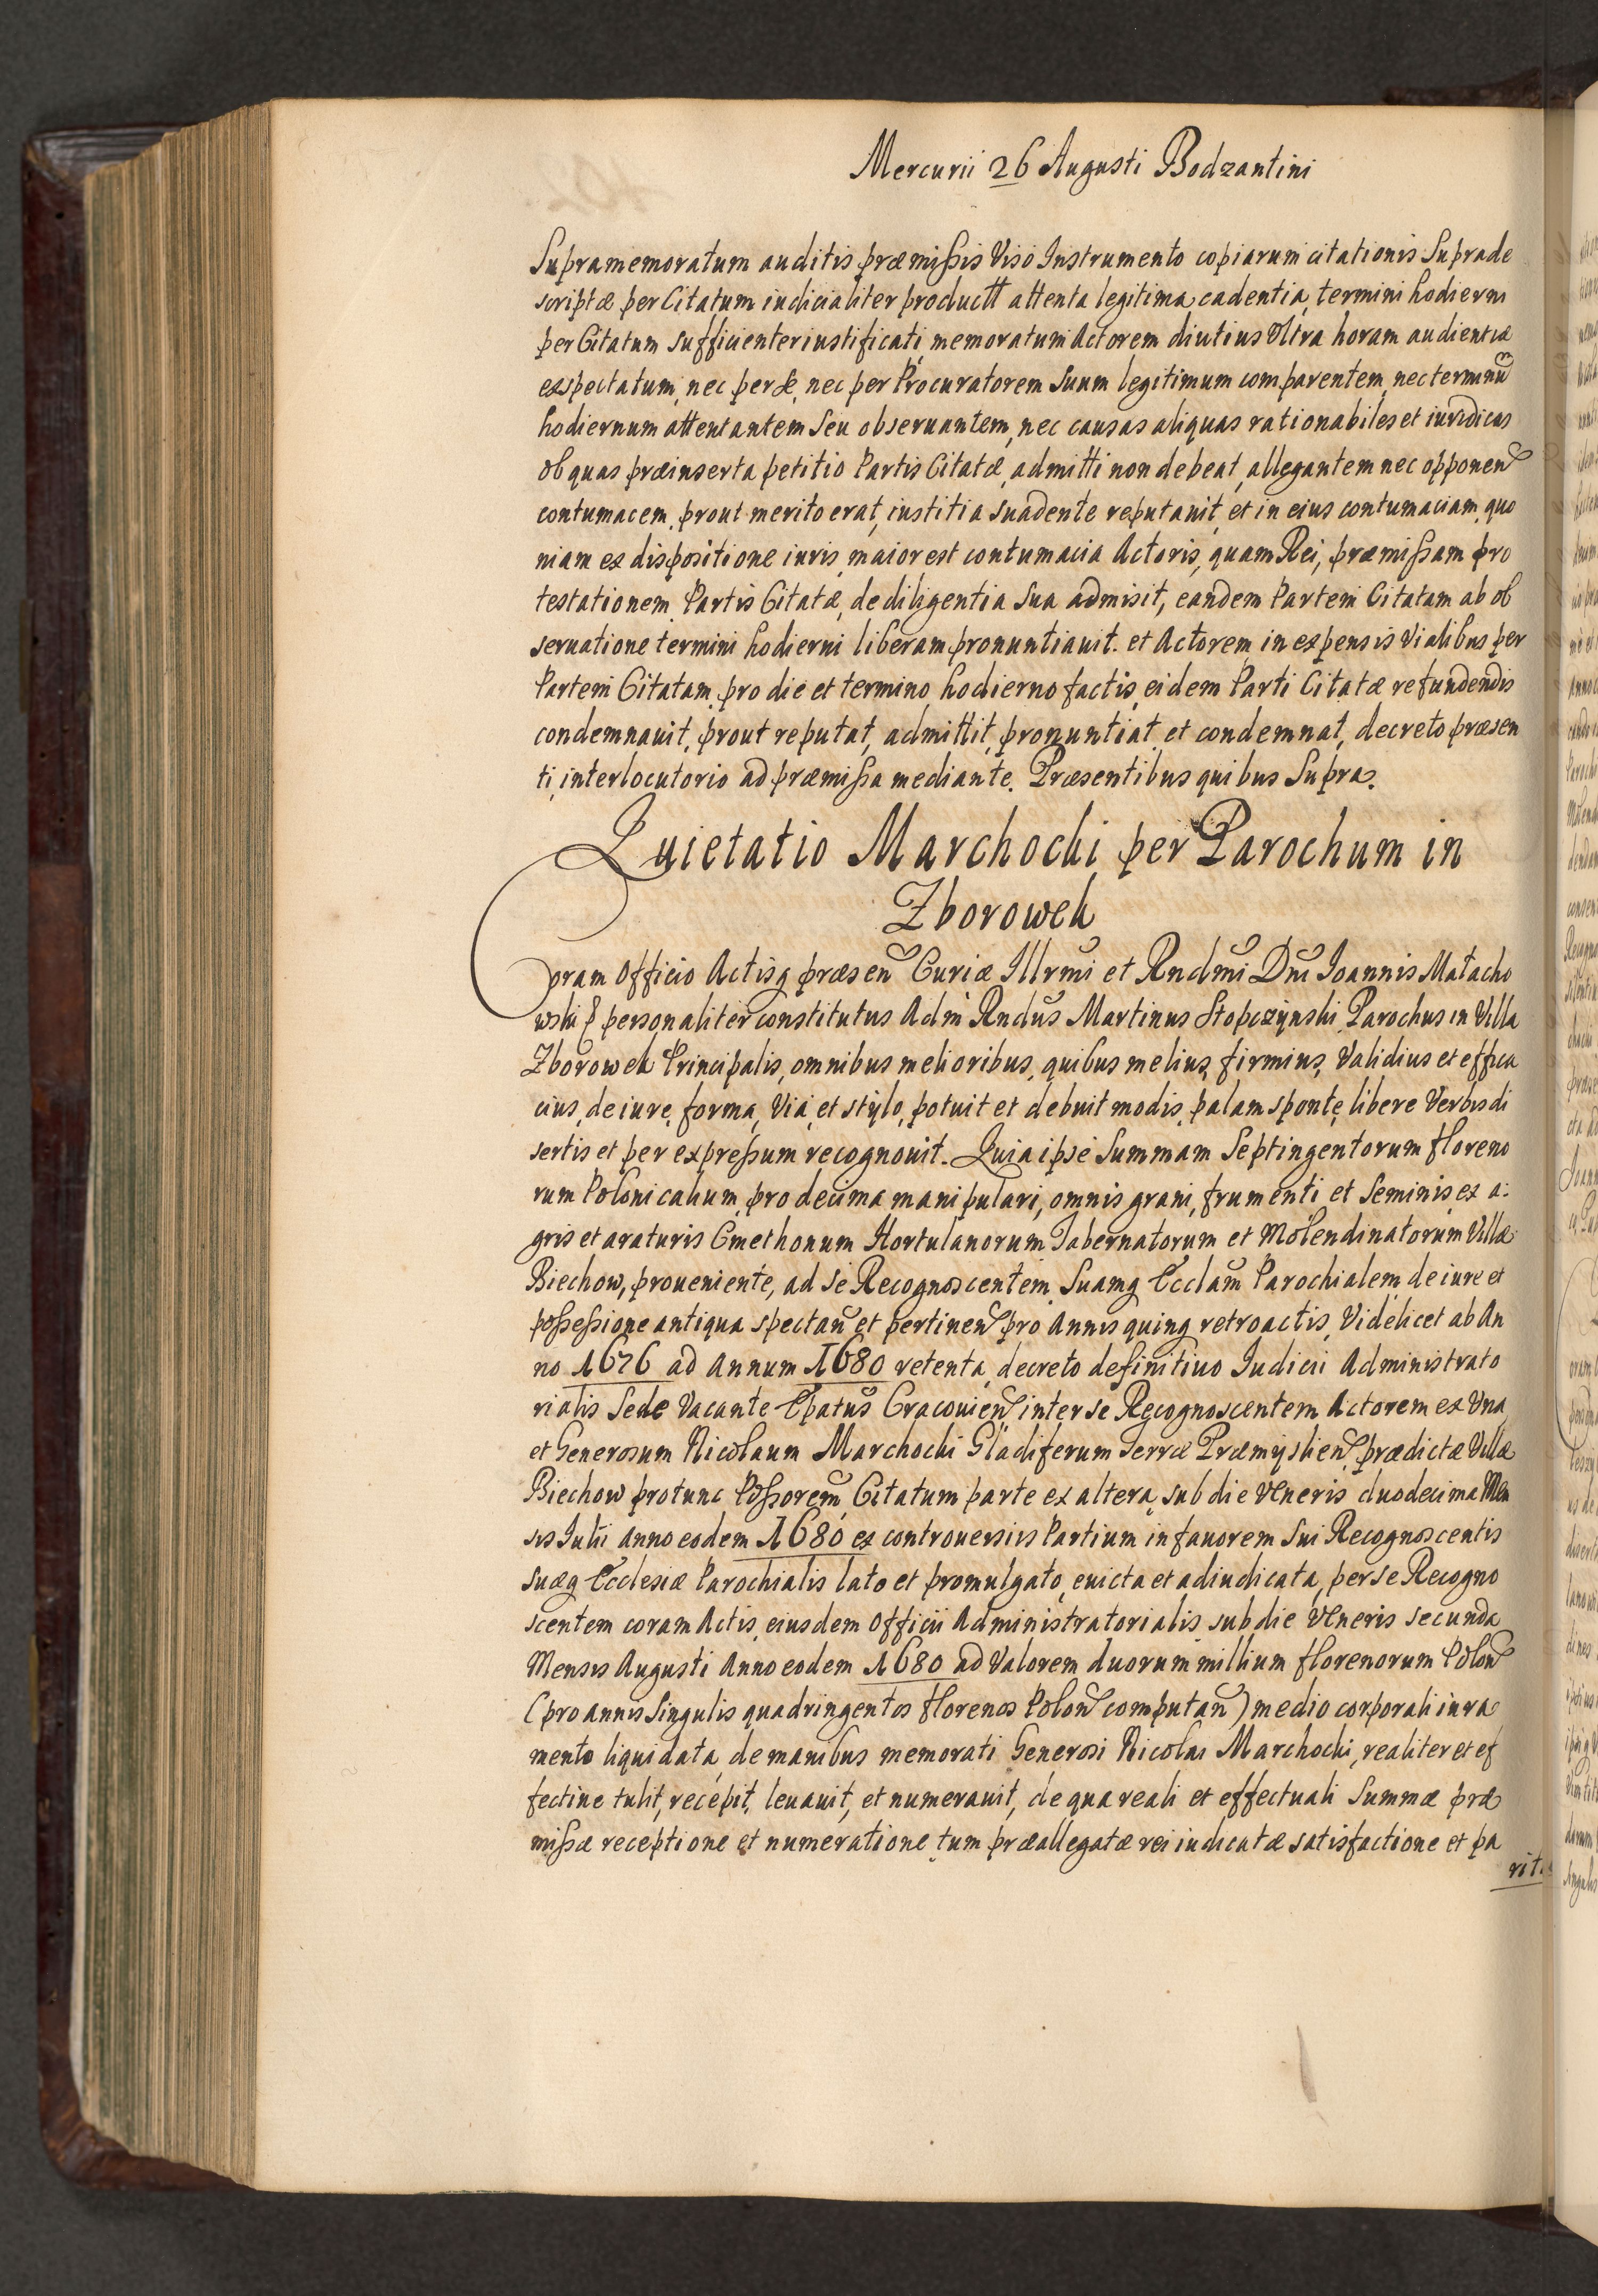 Mercurii 26 Augusti Bodzantini
Supramemoratum auditis præmißis Viso Instrumento copiarum citationis Suprade
scriptæ per Citatum iudicialiter productt attenta legitima cadentia termini hodierni
per Citatum sufficienter iustificati, memoratum Actorem diutius Vltra horam audientiæ
expectatum, nec per se, nec per Procuratorem Suum legitimum comparentem, nec terminũ
hodiernum attentantem Seu obseruantem, nec causas aliquas rationabiles et iuridicas
ob quas præinserta petitio Partis Citatæ, admitti non debeat, allegantem nec opponeñ
contumacem, prout merito erat, iustitia suadente reputauit, et in eius contumaciam, quo
niam ex dispositione iuris, maior est contumacia Actoris, quam Rei, præmißam pro
testationem Partis Citatæ, de diligentia Sua admisit, eandem Partem Citatam ab ob
seruatione termini hodierni liberam pronuntiauit. et Actorem in expensis Vialibus per
Partem Citatam, pro die et termino hodierno factis, eidem Parti Citatæ refundendis
condemnauit, prout reputat, admittit, pronuntiat et condemnat, decreto præsen
ti, interlocutorio ad præmißa mediante. Præsentibus quibus Supra.
Quietatio Marchocki per Parochum in
Zborowek
Coram Officio Actisq præseñ Curiæ Illrm̃i et Rndm̃i Dñi Ioannis Małacho
wski & personaliter constitutus Adm̃ Rndũs Martinus Stopczÿnski, Parochus in Villa
Zborowek Principalis, omnibus melioribus, quibus melius, firmius, Validius et effica
cius, de iure, forma, Via, et stÿlo, potuit et debuit modis, palam sponte, libere Verbis di
sertis et per expreßum recognouit. Quia ipse Summam Septingentorum floreno
rum Polonicalium, pro decima manipulari, omnis grani, frumenti et Seminis, ex a:
gris et araturis Cmethonum Hortulanorum Tabernatorum et Molendinatorum Villæ
Biechow, proueniente, ad se Recognoscentem Suamq Eccłam Parochialem, de iure et
poßeßione antiqua spectañ et pertineñ pro Annis quinq retroactis, Videlicet ab An
no 1676 ad Annum 1680 retenta, decreto definitiuo Iudicii Administrato
rialis Sede Vacante Epatũs Cracouieñ inter se Recognoscentem Actorem ex Vna
et Generosum Nicolaum Marchocki Gladiferum Terræ Præmÿslieñ, prædictæ Villæ
Biechow protunc Poßorem̃ Citatum parte ex altera, sub die Veneris duodecima Men
sis Iulii Anno eodem 1680 ex controuersiis Partium in fauorem Sui Recognoscentis
suæq Ecclesiæ Parochialis lato et promulgato, euicta et adiudicata, per se Recogno
scentem coram Actis, eiusdem Officii Administratorialis, sub die Veneris secunda
Mensis Augusti Anno eodem 1680 ad Valorem duorum millium florenorum Poloñ
(pro annis singulis quadringentos florenos Poloñ computañ) medio corporali iura
mento liquidata, de manibus memorati Generosi Nicolai Marchocki, realiter et ef
fectiue tulit, recepit, leuauit, et numerauit, de qua reali et effectuali Summæ præ
mißæ receptione et numeratione, tum præallegatæ rei iudicatæ satisfactione et pa
rit